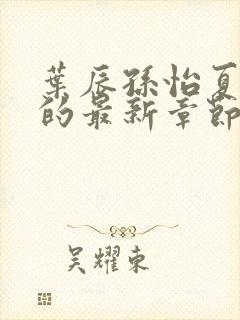 葉辰孫怡夏
的最新章節
吴耀東